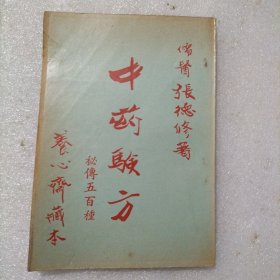 儒醫張德修著
中药驗方
秘傳五百種
養心齋藏本